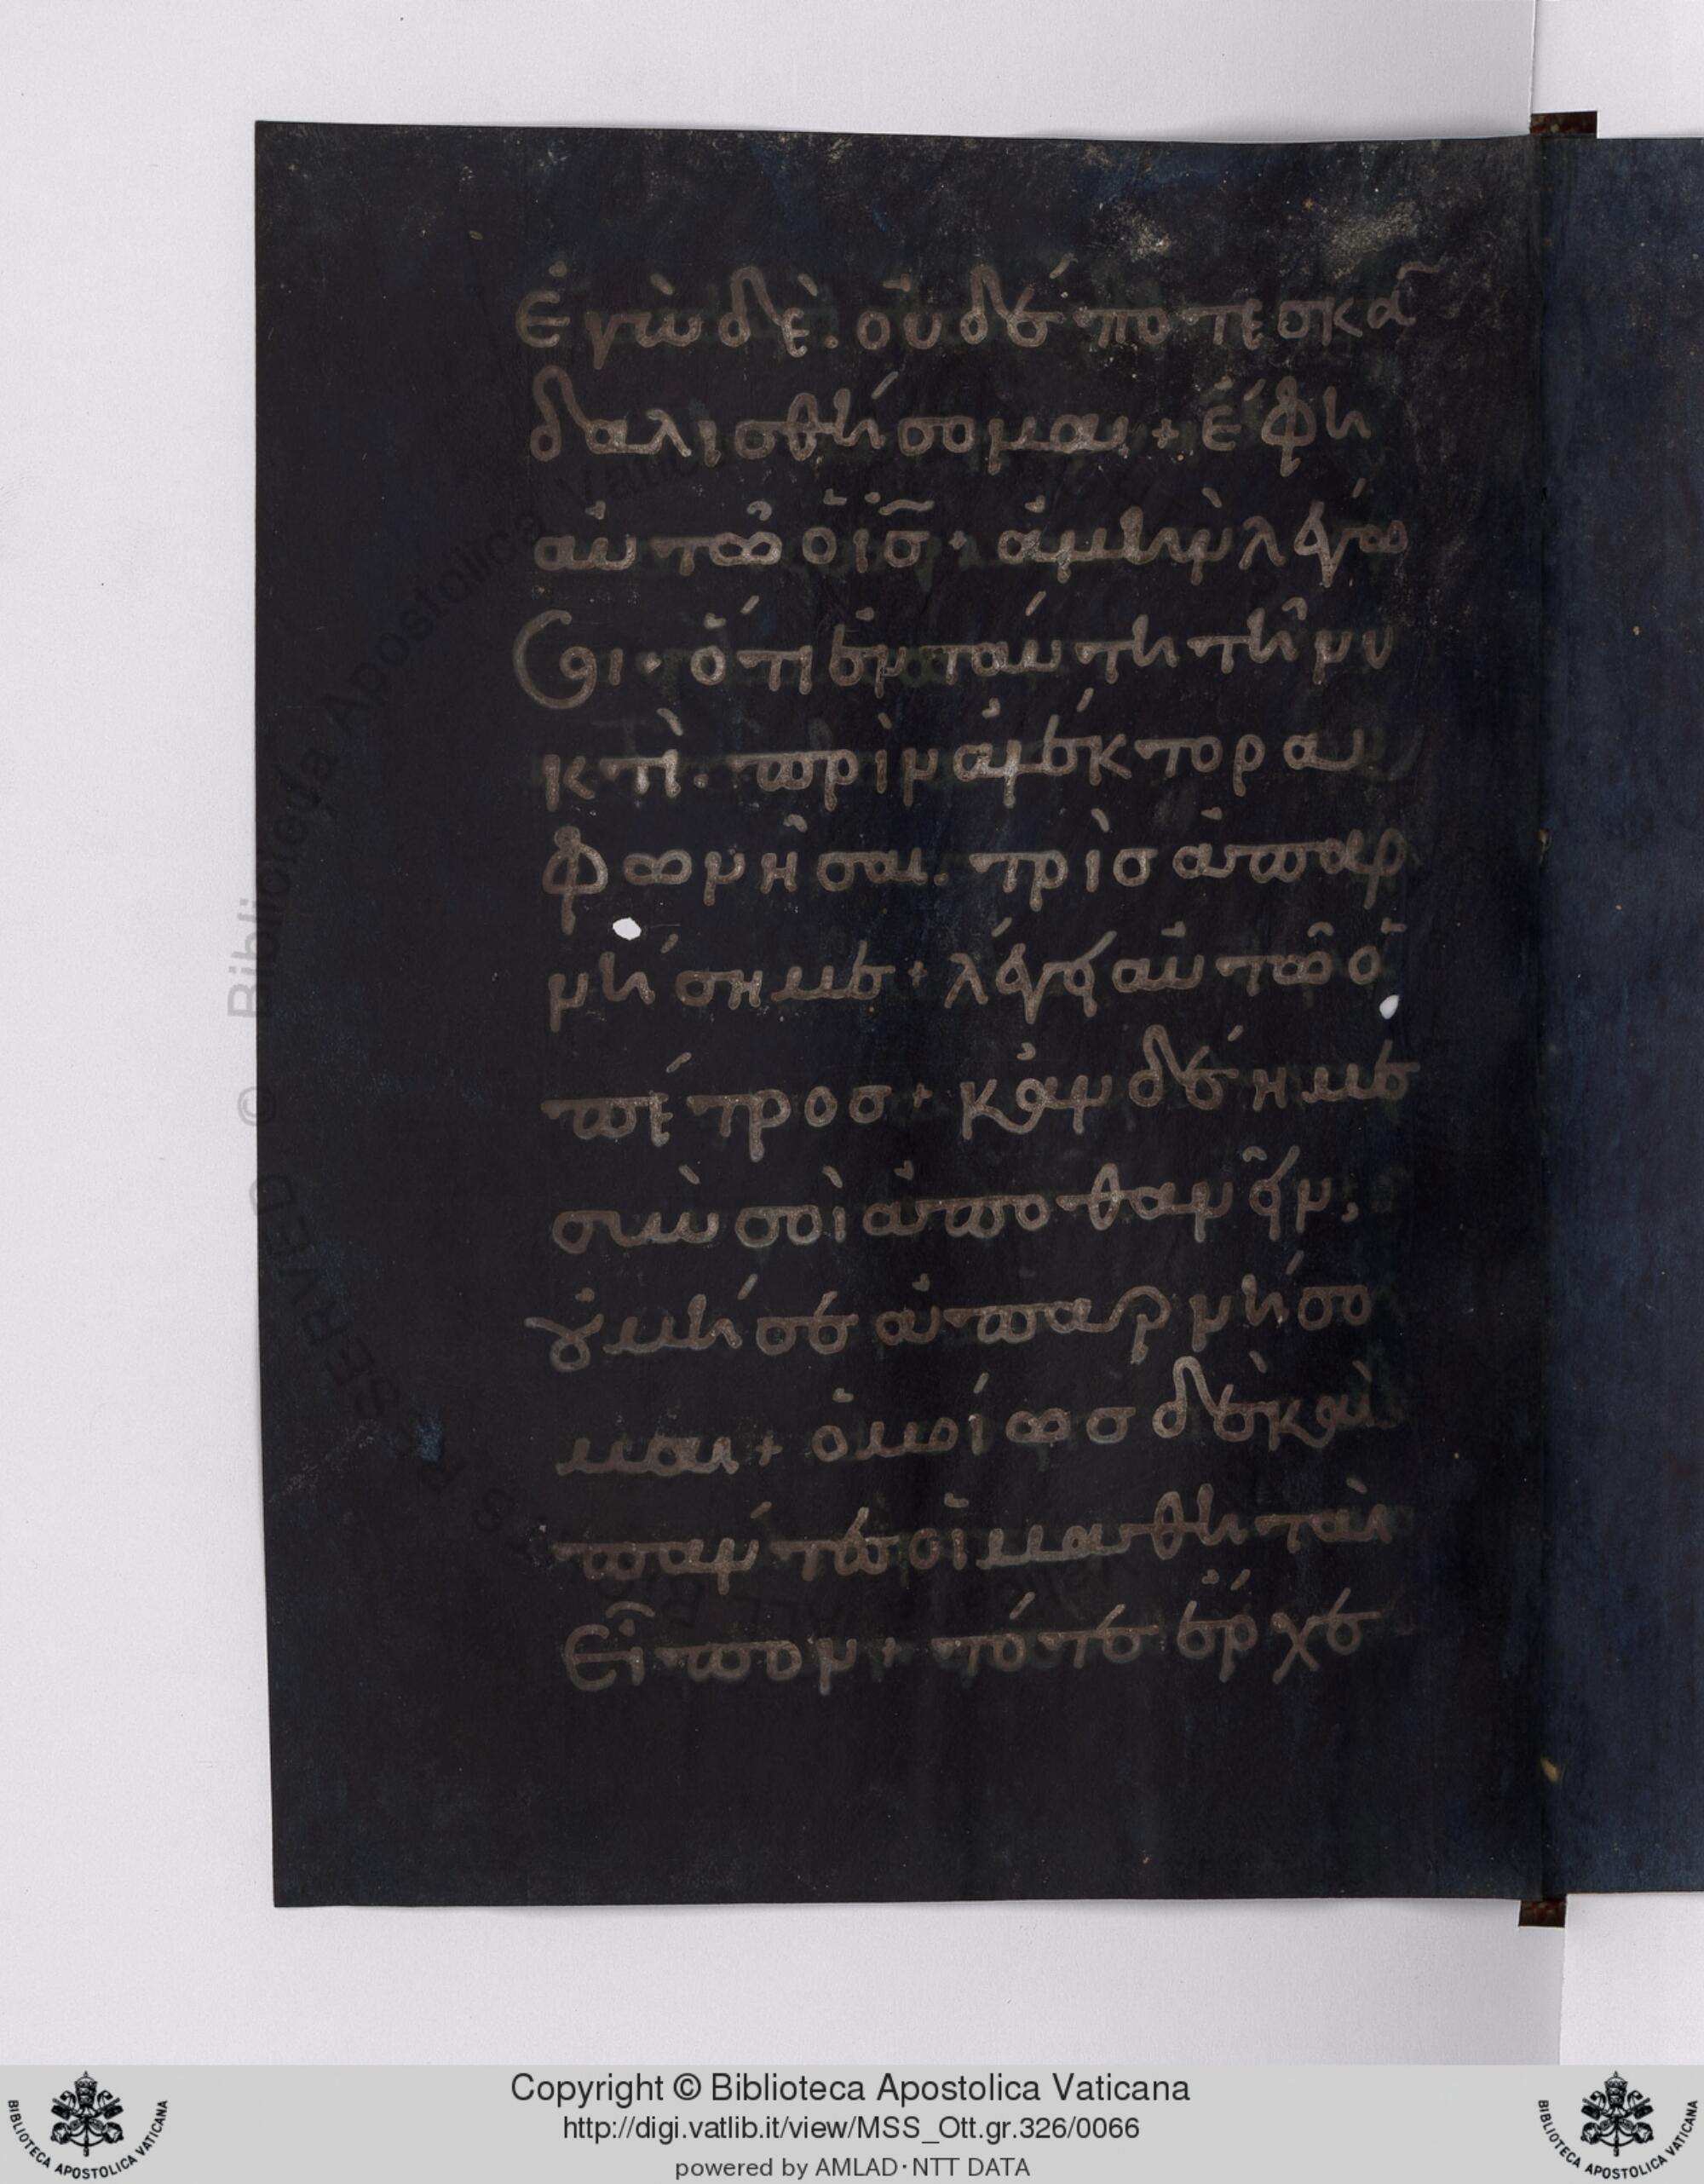 ἐγὼ δὲ. οὐδέποτε σκα̃
δαλισθήσομαι + ἔφη
αὐτῶ ὁ ισ̅ · ἀμὴν λέγω
σοι · ὅτι ἐν ταύτη τῆ νυ
κτὶ. πρὶν ἀλέκτορα
φωνῆσαι. τρὶσ ἀπαρ
νήση με + λέγει αὐτῶ ὁ
πέτροσ + κἂν δέη με
σὺν σοὶ ἀποθανεῖν,
οὐ μή σε ἀπαρνήσο
μαι + ὁμοίωσ δὲ καὶ
πάντεσ οἱ μαθηταὶ
εἶπον + τότε ἔρχε
Biblioteca Apostolica Vaticana
Copyright © Biblioteca Apostolica Vaticana
http://digi.vatlib.it/view/MSS_Ott.gr.326/0066
powered by AMLAD·NTT DATA
BIBLIOTECA APOSTOLICA VATICANA
BIBLIOTECA APOSTOLICA VATICANA